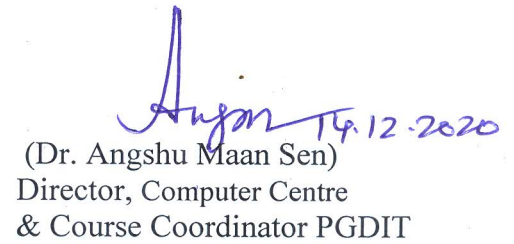 14.12.2020
(Dr. Angshu Maan Sen)
Director, Computer Centre
& Course Coordinator PGDIT